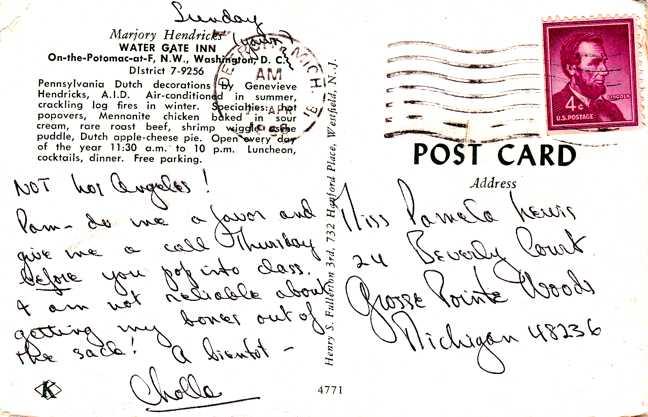 Sunday
(yawn)
Marjory Hendricks'
WATER GATE INN
On-the-Potomac-at-F, N.W., Washington, D. C.
District 7-9256
Pennsylvania Dutch decorations by Genevieve
Hendricks, A.I.D. Air-conditioned in summer,
crackling log fires in winter. Specialties: hot
popovers, Mennonite chicken baked in sour
cream, rare roast beef, shrimp wiggle
puddle, Dutch apple-cheese pie. Open every day
of the year 11:30 a.m. to 10 p.m. Luncheon,
cocktails, dinner. Free parking.
NOT Los Angeles!
Pam- do me a favor and
give me a call Thursday
before you pop into class.
I am not reliable about
getting my bones out of
the sack! A bientot -
Cholla
K
Henry S. Fullerton 3rd, 732 Place, Westfield, N. J.
4771
MICH
AM
APR
4c
LINCOLN
U.S. POSTAGE
POST CARD
Address
Miss Pamela Lewis
24 Beverly Court
Grosse Pointe Woods
Michigan 48236